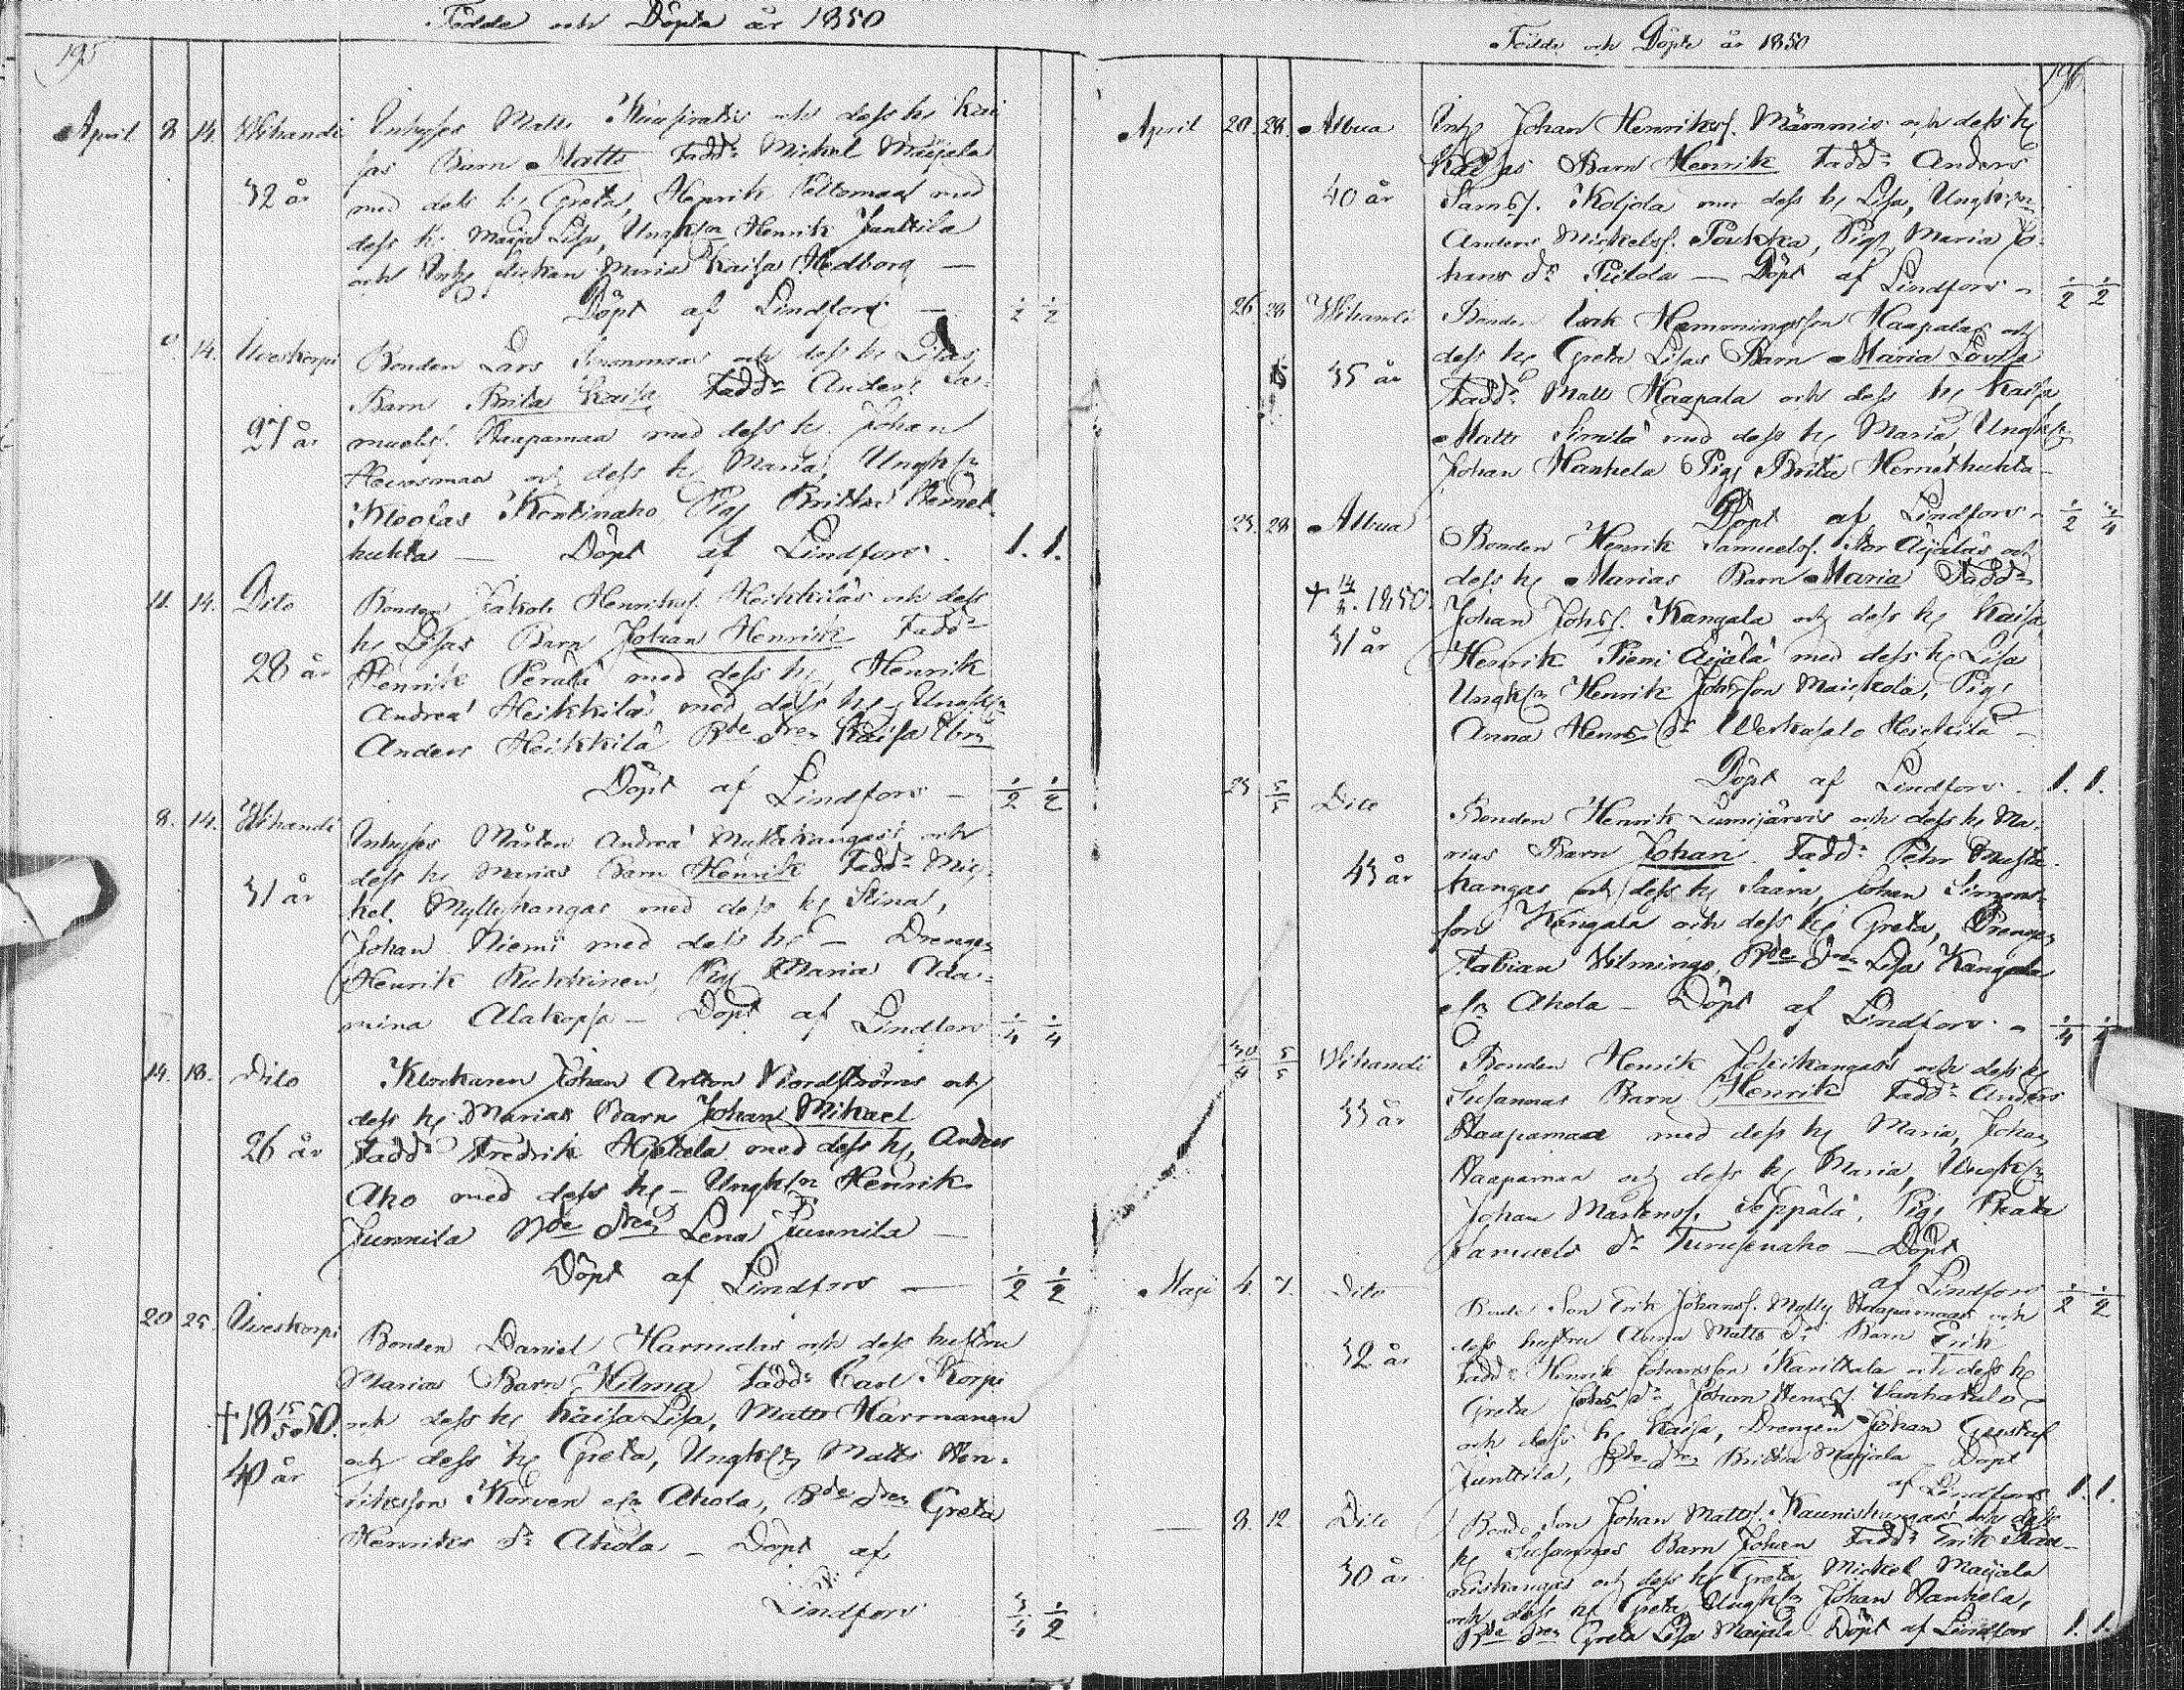 Födde och Döpte år 1850
195
April 8 14. Wihandi Inhyses Matts och dess h. Kai
sas Barn Matts Fadd: Mickel Maijala
32 år med dess h. Greta, Henrik Peltomaa med
dess h. Maja Lisa, Ungk:sn Henrik Junttila
och Inh. flickan Maria Kaisa Hedborg —
Döpt af Lindfors — 1/2 1/2
14. Uveskorpi Bonden Lars och dess h. Lisas
Barn Brita Kaisa Fadd: Anders Sa-
27 år muelsf. Haapamaa med dess h. Johan
och dess h. Maria, Ungk:sn
Kontinaho, Pig. Britta Hernet-
huhta — Döpt af Lindfors. 1. 1.
11. 14. Dito Bonden Jakob Henriksf. Heikkiläs och dess
h. Lisas Barn Johan Henrik Fadd:
28 år Henrik Perälä med dess h., Henrik
Andreä Heikkilä med dess h. — Ungk:sn
Anders Heikkilä Bde dren Kaisa
Döpt af Lindfors — 1/2 1/2
8. 14. Wihandi Inhyses Mårten Andreä Myllykangas och
dess h. Marias Barn Henrik Fadd: Mic-
31 år kel. Myllykangas med dess h. Stina,
Johan Niemi med dess h. — Drengen
Henrik Pig. Maria Ada-
mina Alakopsa — Döpt af Lindfors 1/4 1/4
14. 18. Dito Klockaren Johan Anton Nordströms och
dess h. Marias Barn Johan Mikael
26 år Fadd: Fredrik Hietala med dess h., Anders
Aho med dess h. — Ungk:sn Henrik
Junnila Bde dren Lena Junnila —
Döpt af Lindfors — 1/2 1/2
20 25. Uveskorpi Bonden Daniel Harmalas och dess hustru
Marias Barn Hilma Fadd: Carl Korpi
† 18 15/5 50. och dess h. Kaisa Lisa, Matts Harmanen
40 år och dess h. Greta, Ungk:sn Matts Hen-
riksson Korven Ahola, Bde dren Greta
Henriks dr Ahola — Döpt af
Lindfors 3/4 1/2
Födde och Döpte år 1850
196
April 20. 28 Alkua Inh. Johan Henriksf. Mämmis och dess h.
Kaisas Barn Henrik Fadd: Anders
40 år Sam:sf. Koljola med dess h. Lisa, Ungk:sn
Anders Mickelsf. Poukka, Pig. Maria Jo-
hans dr Pietola — Döpt af Lindfors — 1/2 1/2
26. 28 Wihandi Bonden Erik Hemmingsson Haapalas och
dess h. Greta Lisas Barn Maria Lovisa
35 år Fadd: Matts Haapala och dess h. Kaisa
Matts Simila med dess h. Maria, Ungk:sn
Johan Hankela Pig. Brita Hernethuhta —
Döpt af Lindfors — 1/2 3/4
23. 28 Alkua Bonden Henrik Samuelsf. Stor Äijäläs och
dess h. Marias Barn Maria Fadd:
† 14/8. 1850. Johan Johsf. Kangala och dess h. Kaisa
31 år Henrik Pieni Äijälä med dess h. Lisa
Ungk:sn Henrik Johsson Pig.
Anna Henrs dr Werkasalo Heikkilä —
Döpt af Lindfors. 1. 1.
23 5/5 Dito Bonden Henrik Lumijärvis och dess h. Ma-
rias Barn Johan Fadd: Pehr Musta-
43 år kangas och dess h. Saara, Johan Simons-
son Kangala och dess h. Greta, Drengen
Fabian Wilmingo, Bde dren Lisa Kangala
Ahola — Döpt af Lindfors — 1/4 1/4
30/4 5/5 Wihandi Bonden Henrik Jokikangas's och dess h.
Susannas Barn Henrik Fadd: Anders
33 år Haapamaa med dess h. Maria, Johan
Haapamaa och dess h. Maria, Ungk:sn
Johan Mårtensf. Seppälä, Pig. Beata
Samuels dr Turusenaho — Döpt
af Lindfors 1/2 1/2
Maji 4. 7. Dito Bonde Son Erik Johansf. Mylly Haapamaas och
dess hustru Anna Matts dr Barn Erik
32 år Fadd: Henrik Johansson Karittala och dess h.
Greta Johs dr Johan Henrsf. Wanhatalo
och dess h. Kaisa, Drengen Johan Gustaf
Junttila, Bde dren Britta Maijala Döpt
af Lindfors 1. 1.
8. 12. Dito Bonde Son Johan Mattsf. Kauniskangas's och dess
h. Susannas Barn Johan Fadd: Erik Kau-
30 år niskangas och dess h. Greta, Mickel Maijala
och dess h. Greta, Ungk:sn Johan Hankela,
Bde dren Greta Lisa Maijala Döpt af Lindfors 1. 1.